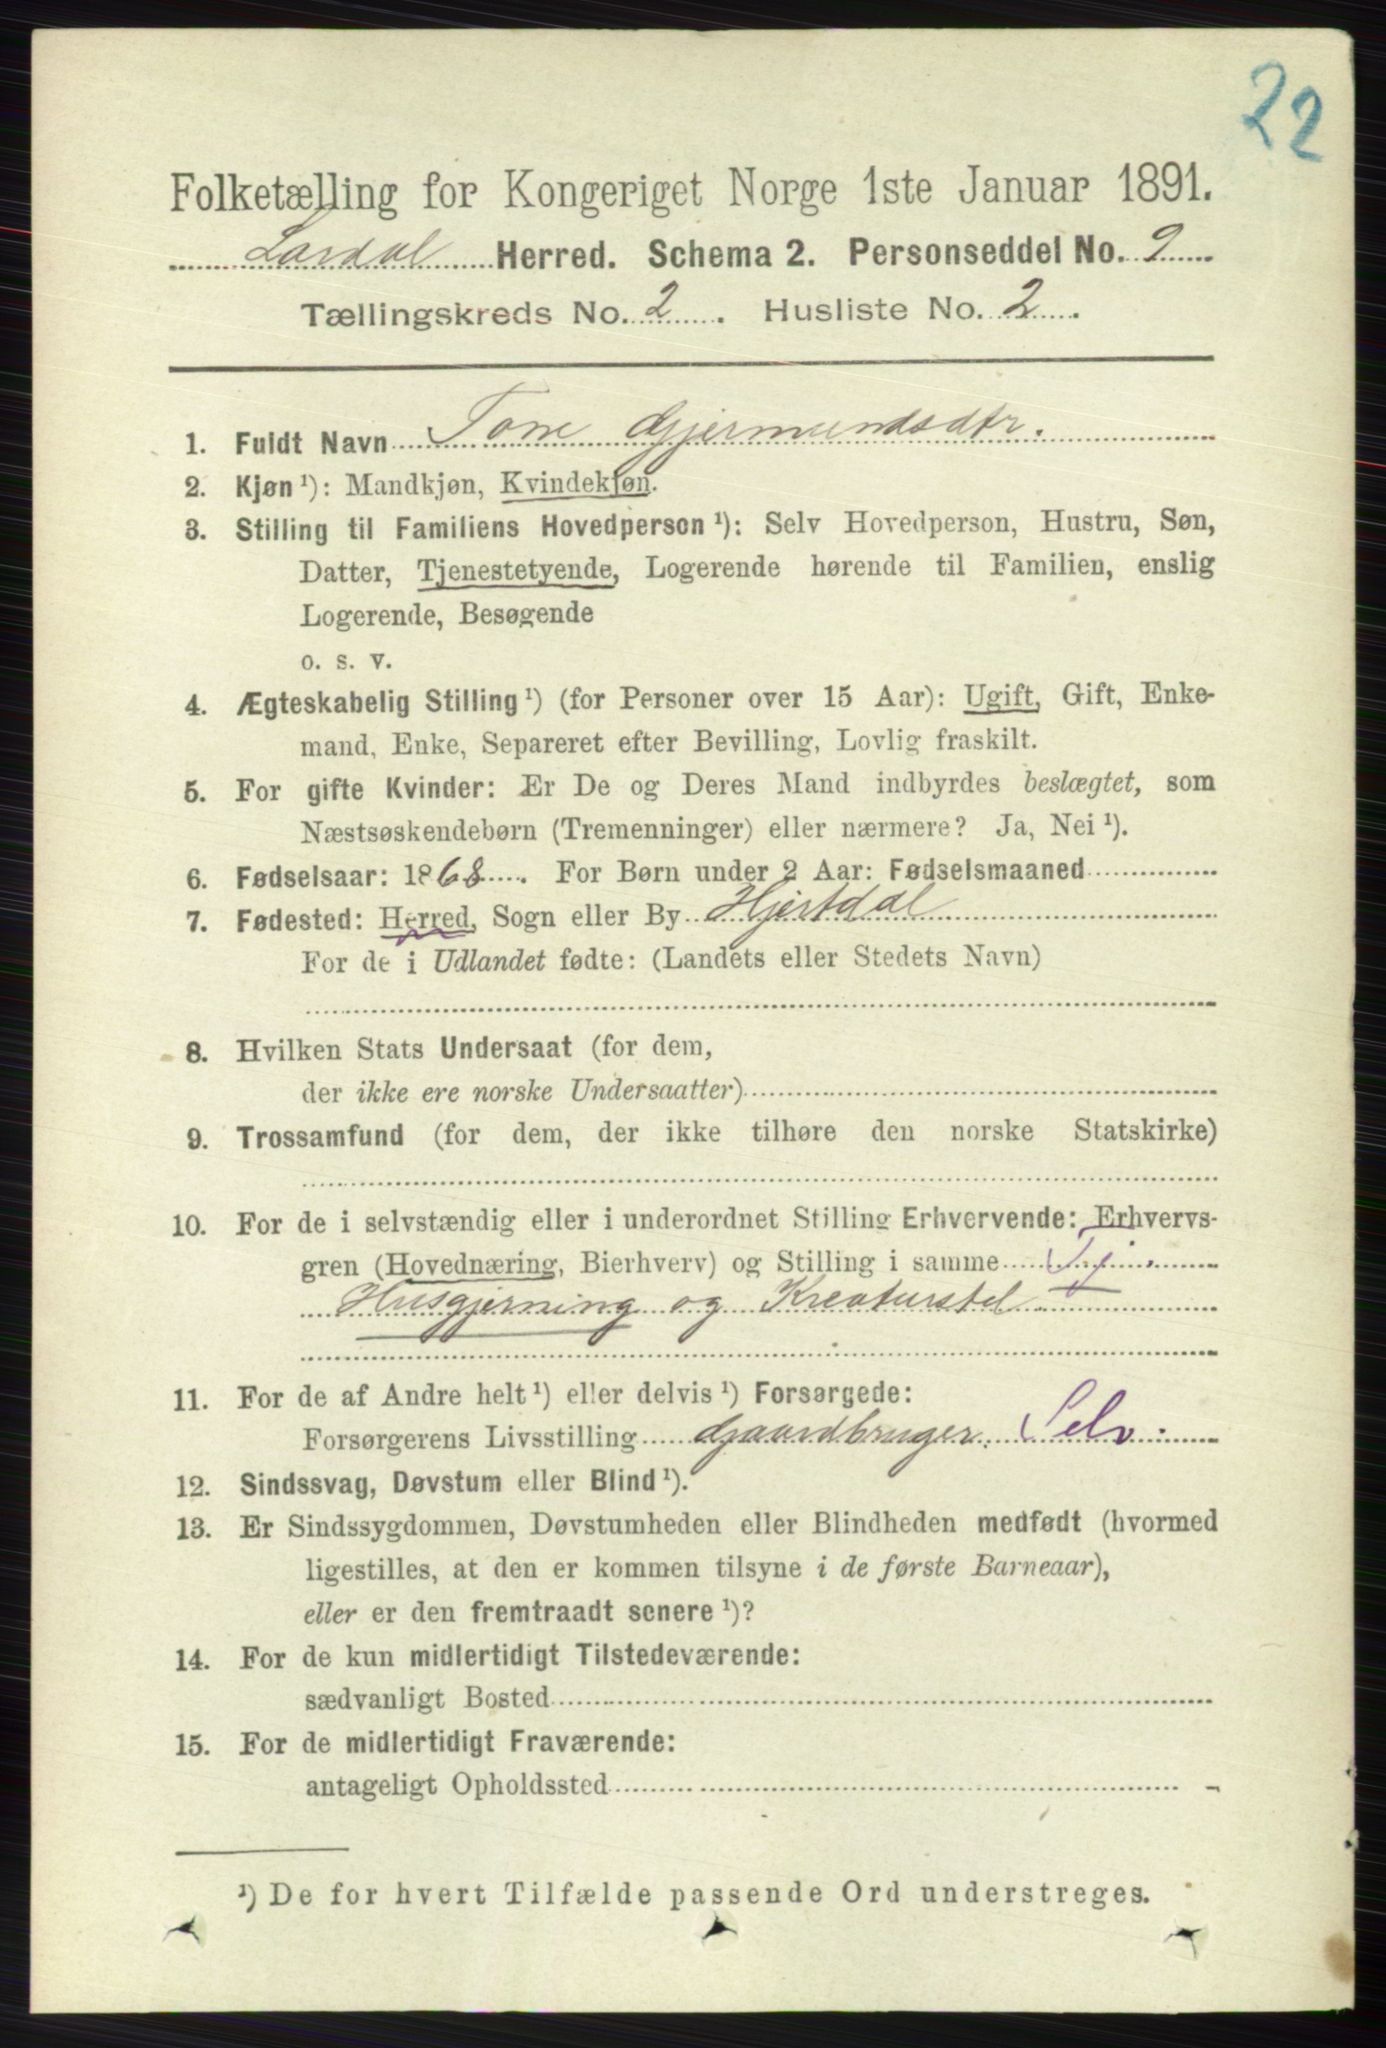 22
Folketælling for Kongeriget Norge 1ste Januar 1891.
Lardal Herred. Schema 2. Personseddel No. 9
Tællingskreds No. 2. Husliste No. 2.
1. Fuldt Navn Tone Gjermundsdtr.
2. Kjøn ¹): Mandkjøn, Kvindekjøn.
3. Stilling til Familiens Hovedperson ¹): Selv Hovedperson, Hustru, Søn,
Datter, Tjenestetyende, Logerende hørende til Familien, enslig
Logerende, Besøgende
o. s. v.
4. Ægteskabelig Stilling ¹) (for Personer over 15 Aar): Ugift, Gift, Enke-
mand, Enke, Separeret efter Bevilling, Lovlig fraskilt.
5. For gifte Kvinder: Er De og Deres Mand indbyrdes beslægtet, som
Næstsøskendebørn (Tremenninger) eller nærmere? Ja, Nei ¹).
6. Fødselsaar: 1868. For Børn under 2 Aar: Fødselsmaaned
7. Fødested: Herred, Sogn eller By Hjertdal
For de i Udlandet fødte: (Landets eller Stedets Navn)
8. Hvilken Stats Undersaat (for dem,
der ikke ere norske Undersaatter)
9. Trossamfund (for dem, der ikke tilhøre den norske Statskirke)
10. For de i selvstændig eller i underordnet Stilling Erhvervende: Erhvervs-
gren (Hovednæring, Bierhverv) og Stilling i samme Tj.
Husgjerning og Kreaturstel
11. For de af Andre helt ¹) eller delvis ¹) Forsørgede:
Forsørgerens Livsstilling Gaardbruger. Selv.
12. Sindssvag, Døvstum eller Blind ¹).
13. Er Sindssygdommen, Døvstumheden eller Blindheden medfødt (hvormed
ligestilles, at den er kommen tilsyne i de første Barneaar),
eller er den fremtraadt senere ¹)?
14. For de kun midlertidigt Tilstedeværende:
sædvanligt Bosted
15. For de midlertidigt Fraværende:
antageligt Opholdssted
¹) De for hvert Tilfælde passende Ord understreges.